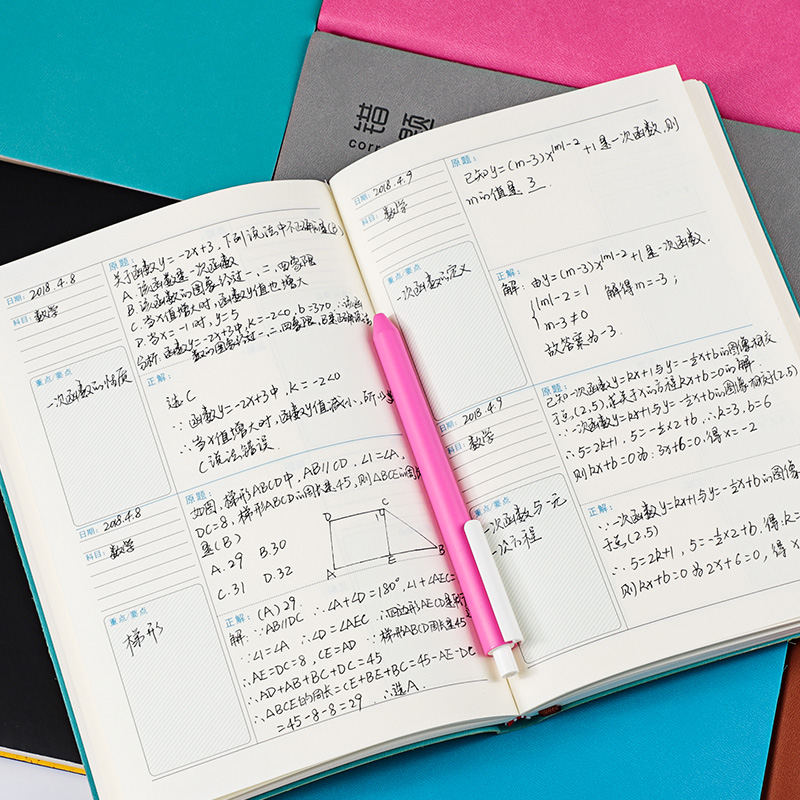 错题
corr
日期: 2018.4.8
科目: 数学
原题:
关于函数y=-2x+3,下列说法中不正确是(B)
A.该函数是一次函数
B.该函数的图象经过一、二、四象限
C.当x值增大时,函数y值也增大
D.当x=-1时,y=5
分析:函数y=-2x+3中,k=-2<0,b=3>0,∴该函
数的图象经过一、二、四象限,
重点/要点
一次函数的性质
正解:
选C
∵函数y=-2x+3中,k=-2<0
∴当x值增大时,函数y值减小,所以
C说法错误.
日期: 2018.4.8
科目: 数学
原题:
如图,梯形ABCD中,AB//CD,∠1=∠A,
DC=8,梯形ABCD的周长是45,则△BCE的周
是(B)
A.29 B.30
C.31 D.32
D C
1
A E B
重点/要点
梯形
正解: (A)29
解:∵AB//DC ∴∠A+∠D=180°,∠1+∠AEC=
∵∠1=∠A ∴∠D=∠AEC ∴四边形AECD是
∴AE=DC=8,CE=AD ∵梯形ABCD周长45
∴AD+AB+BC+DC=45
∴△BCE的周长=CE+BE+BC=45-AE-DC
=45-8-8=29 ∴选A.
日期: 2018.4.9
科目: 数学
原题:
已知y=(m-3)x|m|-2+1是一次函数,则
m的值是 3
重点/要点
一次函数的定义
正解:
解:由y=(m-3)x|m|-2+1是一次函数.
{|m|-2=1
m-3≠0 解得m=-3;
故答案为-3.
日期: 2018.4.9
科目: 数学
原题:
已知一次函数y=kx+1与y=-½x+b的图像相交
于点(2,5),求关于x的方程kx+b=0的解
∵一次函数y=kx+1与y=-½x+b的图像相交于(2,5)
∴5=2k+1,5=-½x2+b,∴k=3,b=6
则kx+b=0为:3x+6=0,得x=-2
重点/要点
一次函数与一元
一次方程
正解:
∵一次函数y=kx+1与y=-½x+b的图像
于点(2,5)
∴5=2k+1,5=-½x2+b,得k=
则kx+b=0为2x+6=0,得x